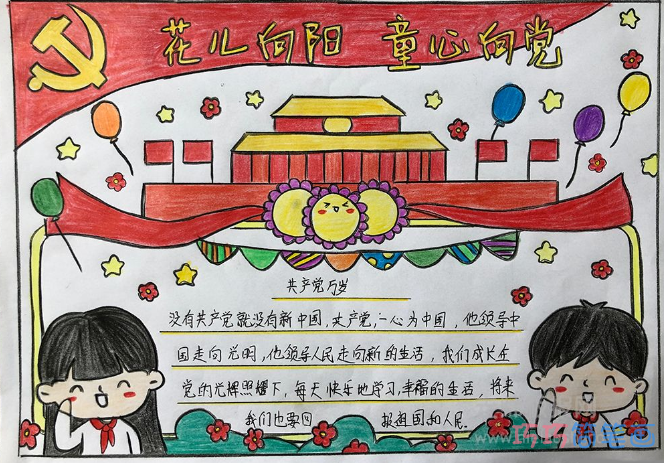 花儿向阳 童心向党
共产党万岁
没有共产党就没有新中国,共产党,一心为中国,他领导中
国走向光明,他领导人民走向新的生活,我们成长在
党的光辉照耀下,每天快乐地学习,幸福的生活,将来
我们也要 报祖国和人民.